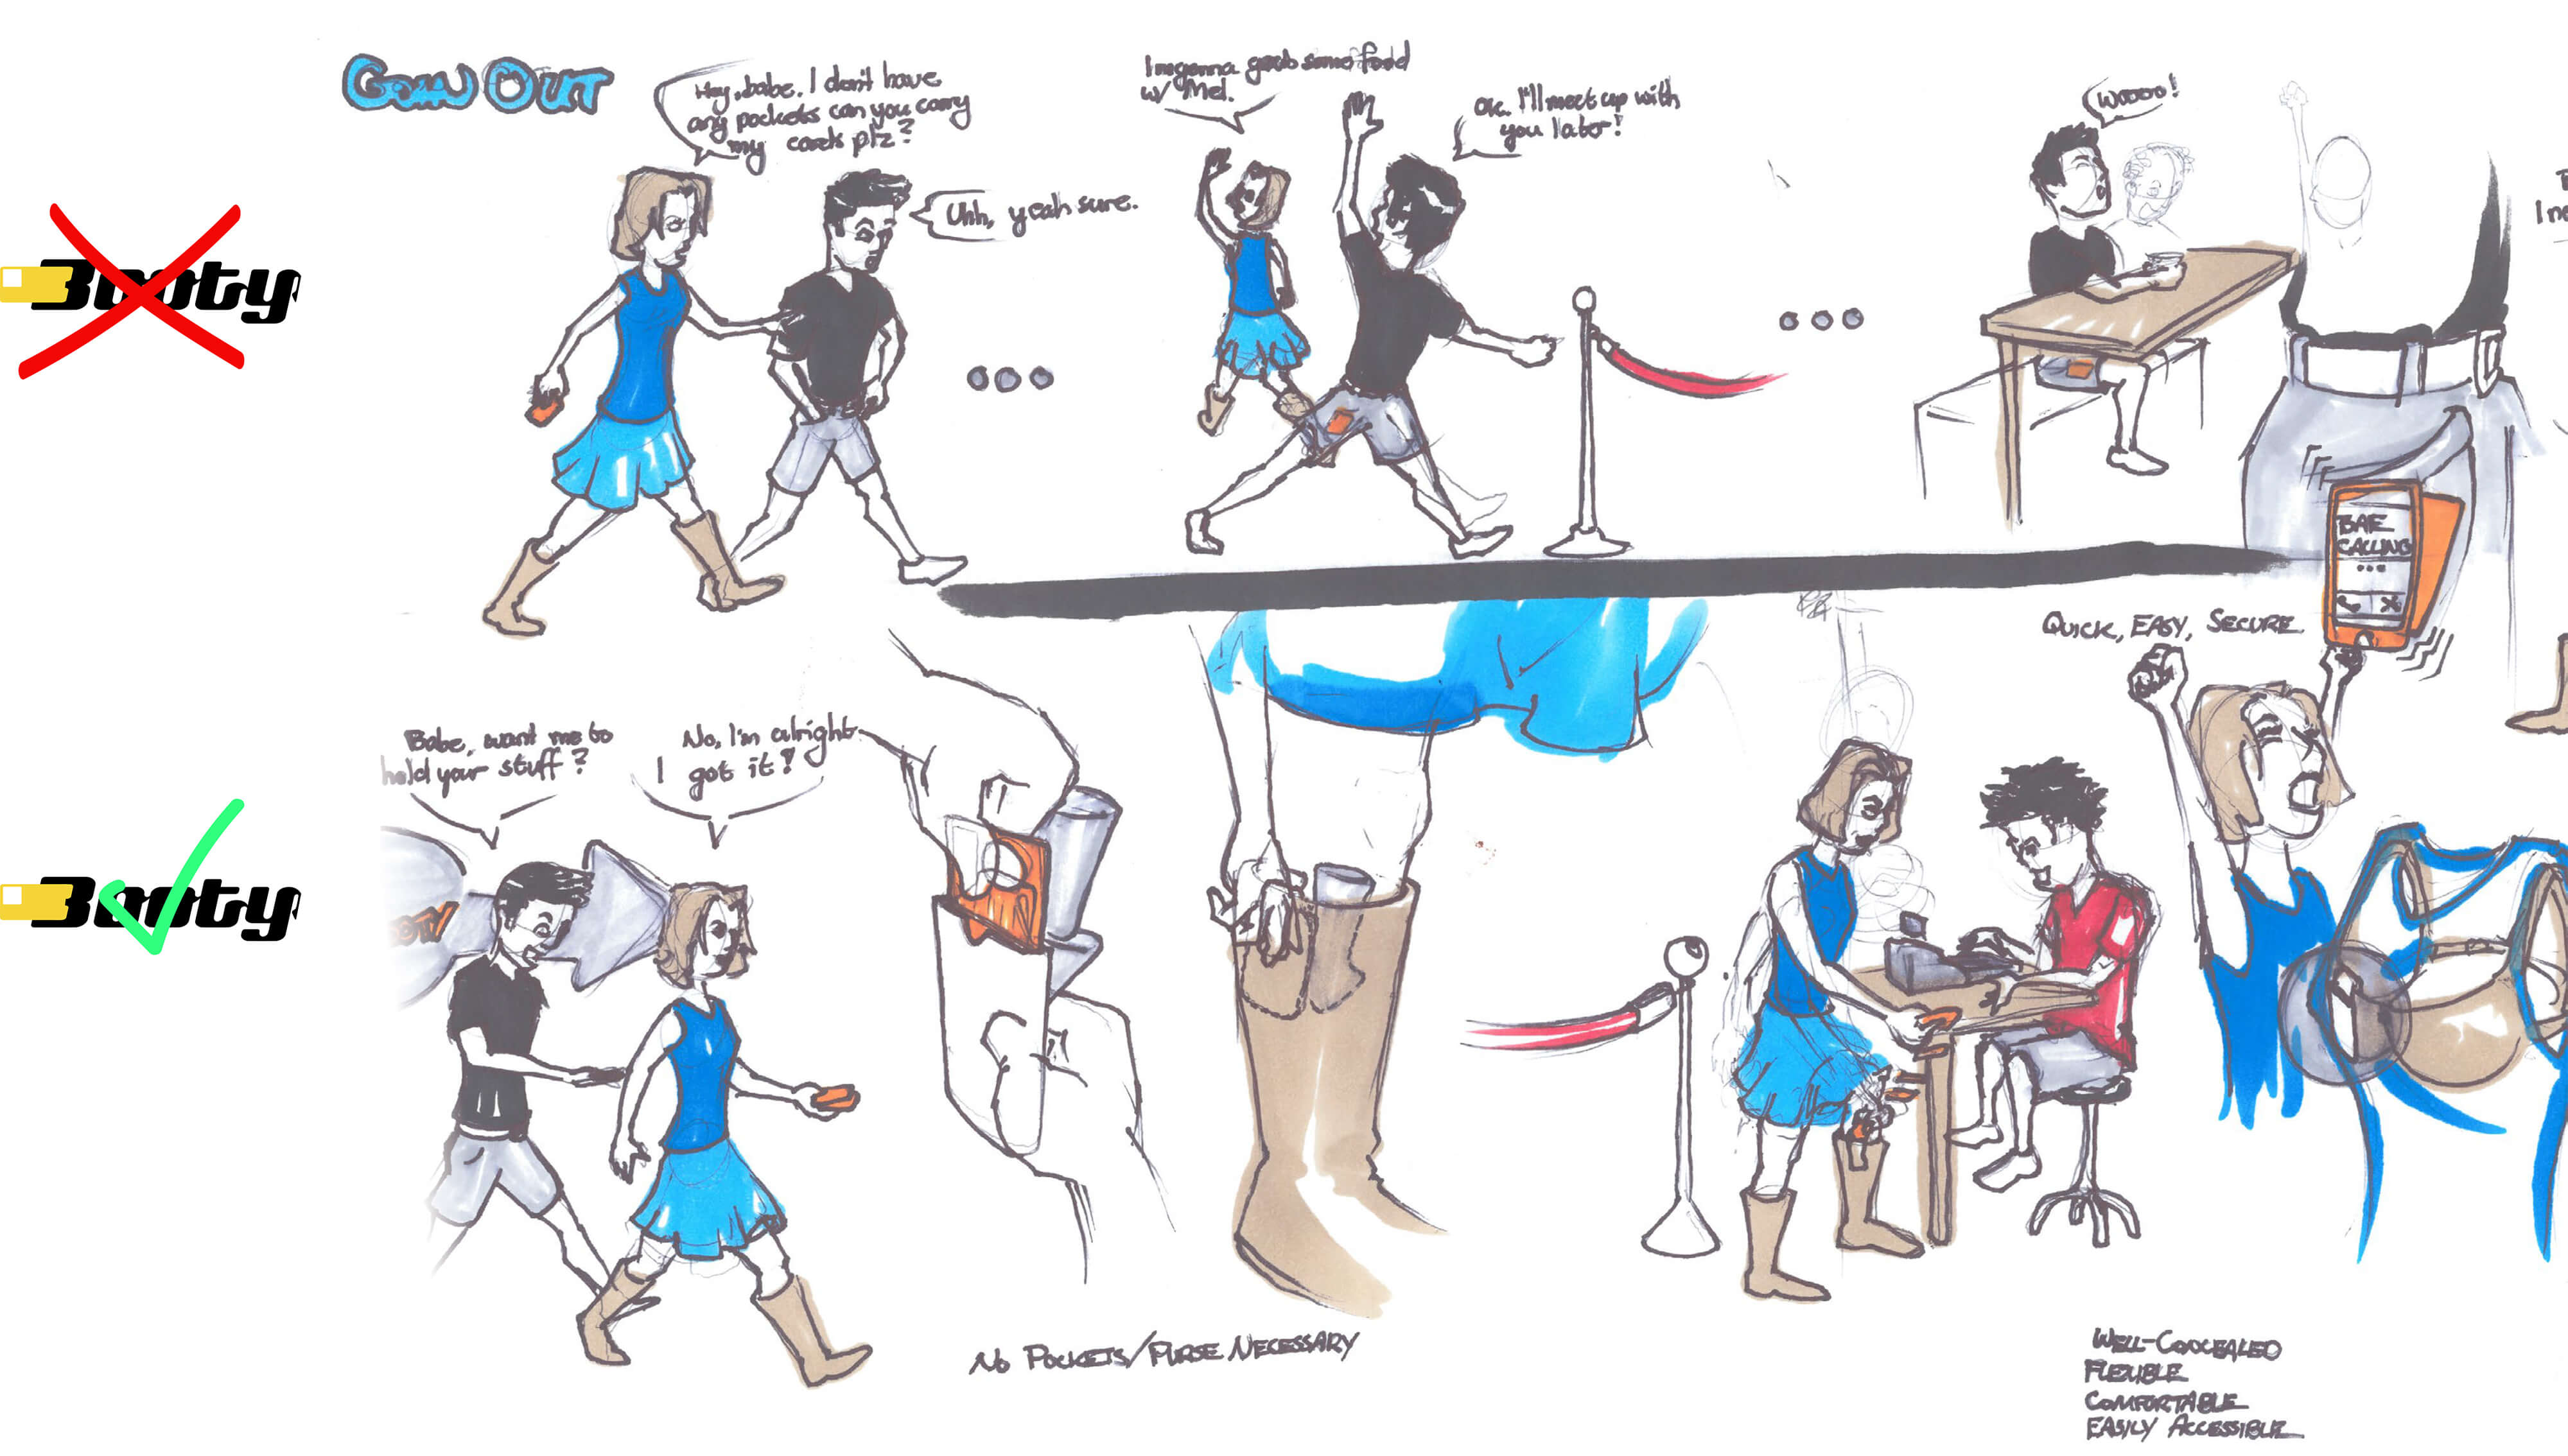 GOIN OUT
Hey, babe. I don't have
any pockets can you carry
my cards plz?
Uhh, yeah sure.
I'm gonna grab some food
w/ Mel.
Ok. I'll meet up with
you later!
Woooo!
Booty
BAE
CALLING
...
QUICK, EASY, SECURE.
Babe, want me to
hold your stuff?
No, I'm alright
I got it!
Booty
NO POCKETS/PURSE NECESSARY
WELL-CONCEALED
FLEXIBLE
COMFORTABLE
EASILY ACCESSIBLE